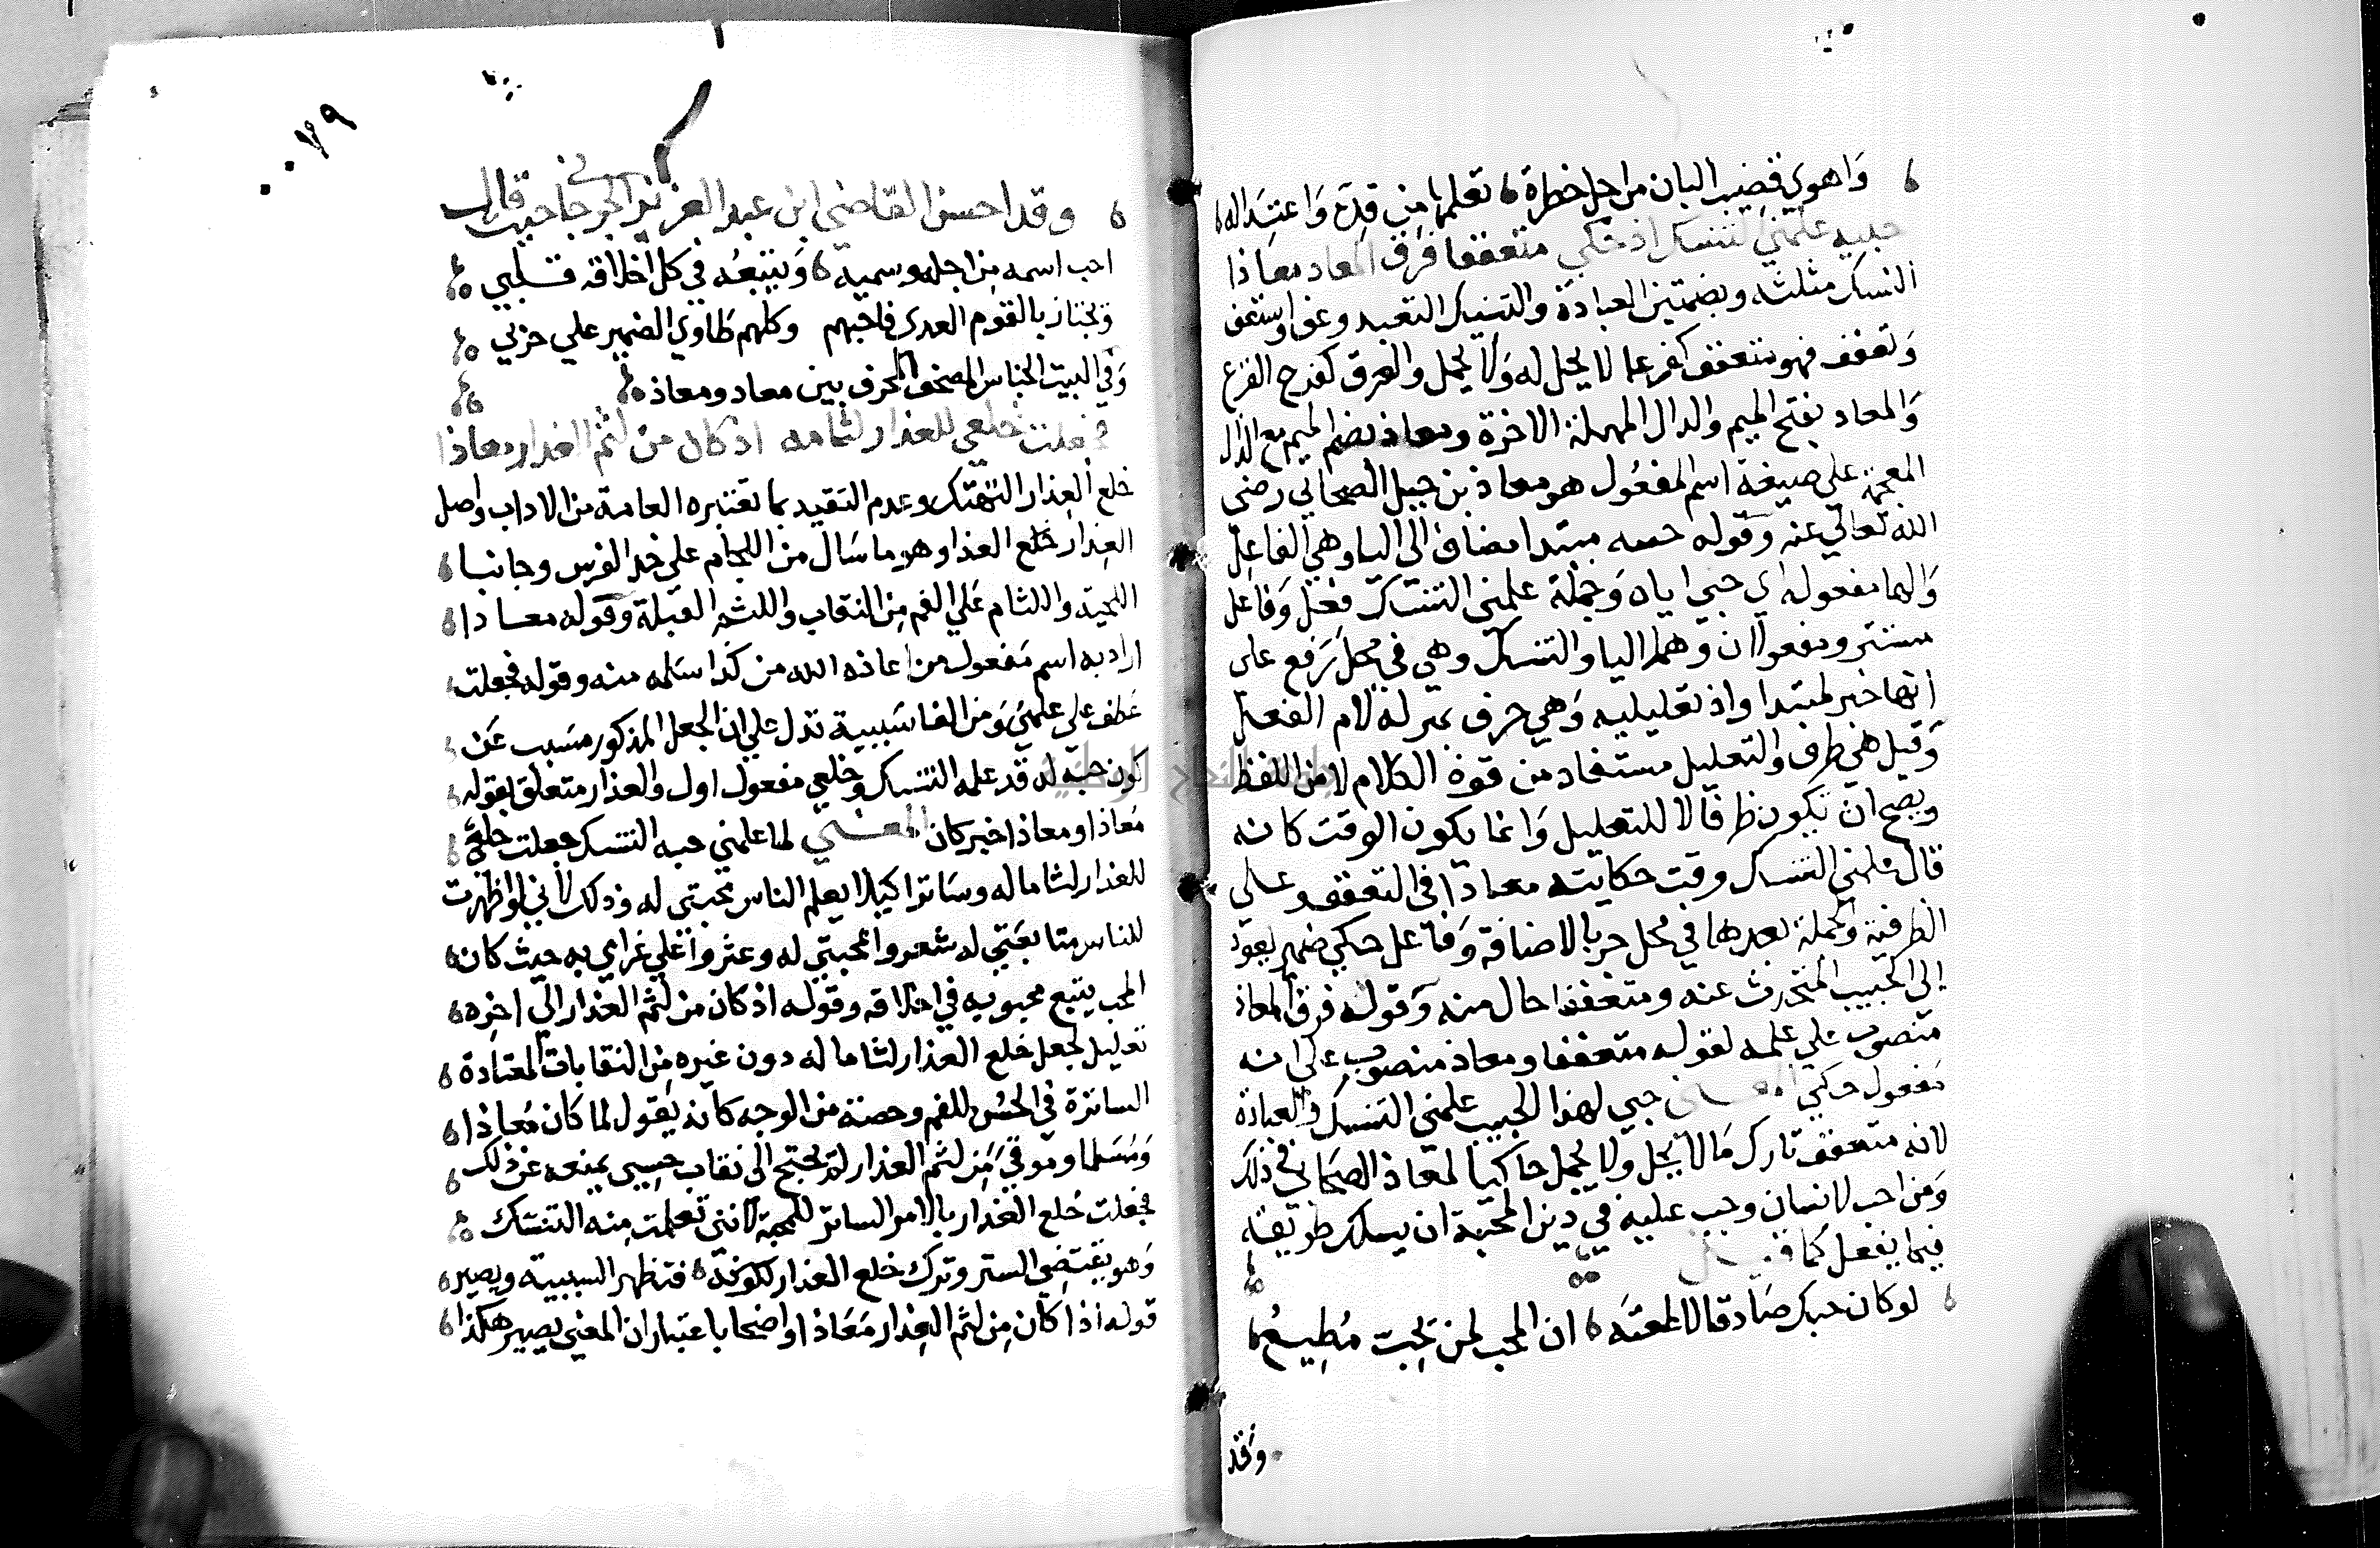 وَاهوي قضيب البان من اجل خطرة تعلمها من قدّه وَاعتداله
حبيه علمني التنسك اذ حكي متعففا فرق المعاد معاذا
النسك مثلثه وبضمتين العبادة والتنسك التعبد وعف واستعف
وَتعفف فهو متعفف كف عما لا يحل له وَلا يجمل والفرق كفرح الفزع
وَالمعاد بفتح الميم والدال المهملة الاخرة ومعاذ بضم الميم مع الذال
المعجمة علي صيغة اسم المفعُول هو معاذ بن جبل الصحابي رضي
الله تعالي عنه وَقوله حبيه مبتدا مضاف الي اليا وهي الفاعل
وَالها مفعوله اي حبي اياه وَجملة علمني التنسك فعل وَفاعل
مستتر ومفعولان وهما اليا والتنسك وهي في محل رفع علي
انها خبر لمبتدا واذ تعليليه وَهي حرف بمنزلة لام الفعل
وَقيل هي ظرف والتعليل مستفاد من قوة الكلام لا من اللفظ
ويصح ان تكون ظرفا لا للتعليل وَانما يكون الوقت كانه
قال علمني التنسك وقت حكايته معاذا في التعفف وعلي
الظرفية والجملة بعدها في محل جر بالاضافة وَفاعل حكي ضمير يعود
الي الحبيب المتحدث عنه ومتعففا حال منه وَقوله فرق المعاد
منصوب علي علمه لقوله متعففا ومعاذ منصوب علي انه
مفعول حكي المعني حبي لهذا الحبيب علمني التنسك والعبادة
لانه متعفف تارك مَا لا يحل ولا يجمل حاكيا لمعاذ الصحابي في ذلك
وَمن احب لانسان وجب عليه في دين المحبة ان يسلك طريقته
فيما يفعل كما
لو كان حبك صَادقا لاطعتَه ان المحب لمن يحب مُطِيعُ
وَقد
وقد احسن القاضي ابن عبد العزيز الجرجاني حيث قال
احب اسمه من اجله وسميه وَيتبعُه في كل اخلاقه قلبي
وَيجتاز بالقوم العدي فاحبهم وكلهم طاوي الضمير علي حربي
وَفي البيت الجناس المصحف المحرف بين معاد ومعاذ
فجعلت خلعي للعذار لثامه اذ كان من لثم العذار معاذا
خلع العذار التهتك وعدم التقيد بما تعتبره العامة من الاداب واصل
العِذار خلع العذار وهو ما سَال من اللجام علي خد الفرس وجانبا
اللحية واللثام عَلي الفم مِن النقاب واللثم القبلة وَقوله معاذا
اراد به اسم مَفعول من اعاذه الله من كذا سَلمه منه وقوله فجعلت
عَطف علي علمني وَمن الفا سَببية تدل علي ان الجعل المذكور مسَبب عَن
كون حبه له قد علمه التنسك وخلعي مفعول اول والعذار متعلق بقوله
مُعاذا ومعاذا خبر كان المعني لما علمني حبه التنسك جعلت خلعي
للعذار لثاما له وسَاترا كيلا يعلم الناس محبتي له وذلك لاني لو اظهرت
للناس متابعَتي له شعروا بمحبتي له وعثروا علي غرامي به حيث كان
المحب يتبع محبوبه في اخلاقه وقوله اذ كان من لثم العذار الي اخره
تعليل لجعل خلع العذار لثاما له دون غيره من النقابات المعتادة
الساترة في الحسّ للفم وحصته من الوجه كانه يَقول لما كان مُعاذا
وَمُسَلما وموقيّ مَن لثم العذار لم يحتج الي نقاب حسي يمنعه عن ذلك
فجعلت خلع العذار بالامر الساتر للمحبة لانني تعلمت منه التنسّك
وَهو يقتضي الستر وترك خلع العذار لكونه فتظهر السببية ويصير
قوله اذا كان مِن لثم العِذار مَعَاذا واضحا باعتبار ان المعني يصير هكذا